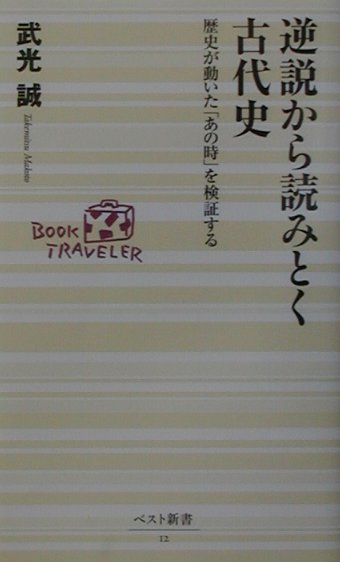 逆説から読みとく
古代史
歴史が動いた「あの時」を検証する
武光 誠
Takemitsu Makoto
BOOK
TRAVELER
ベスト新書
12